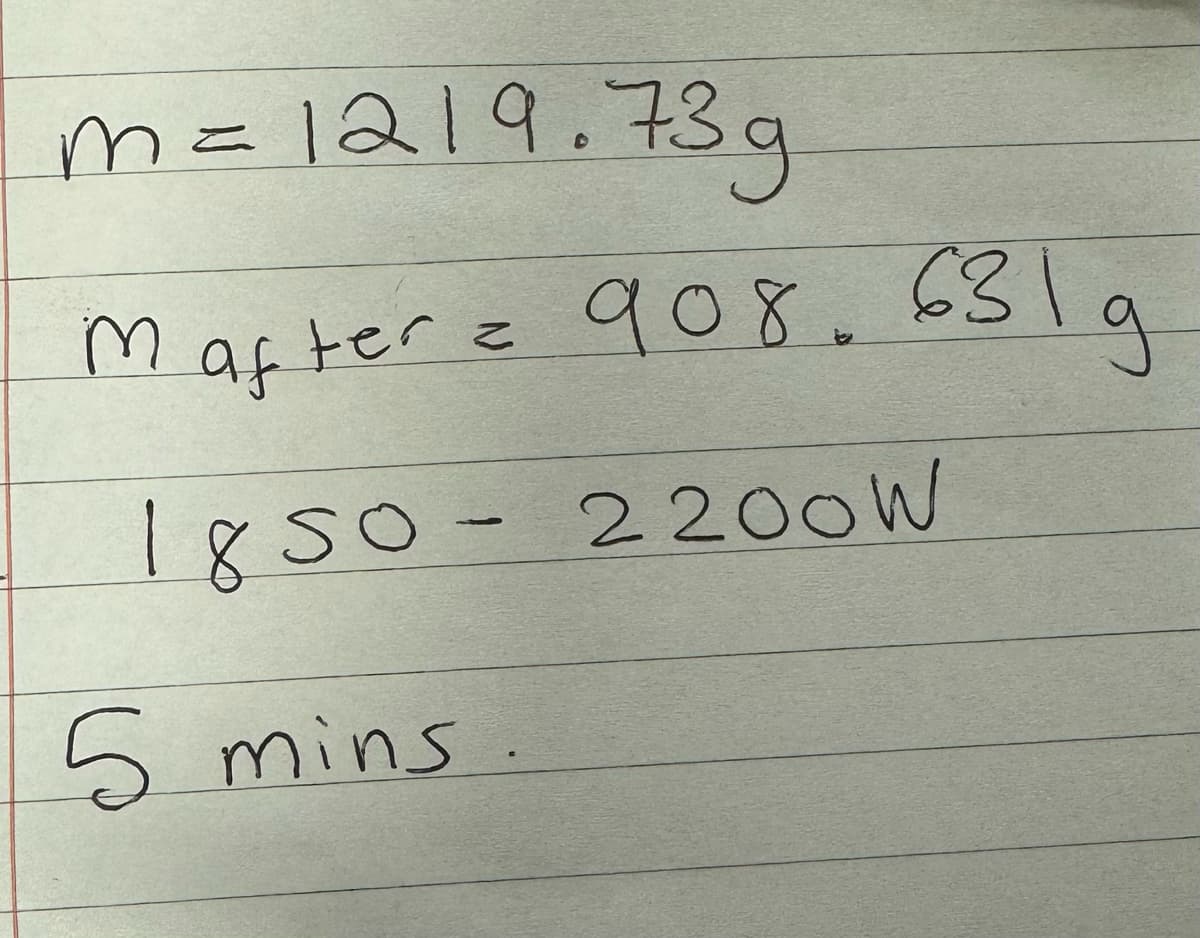 m = 1219.73g
m after = 908.631g
1850 - 2200W
5 mins.